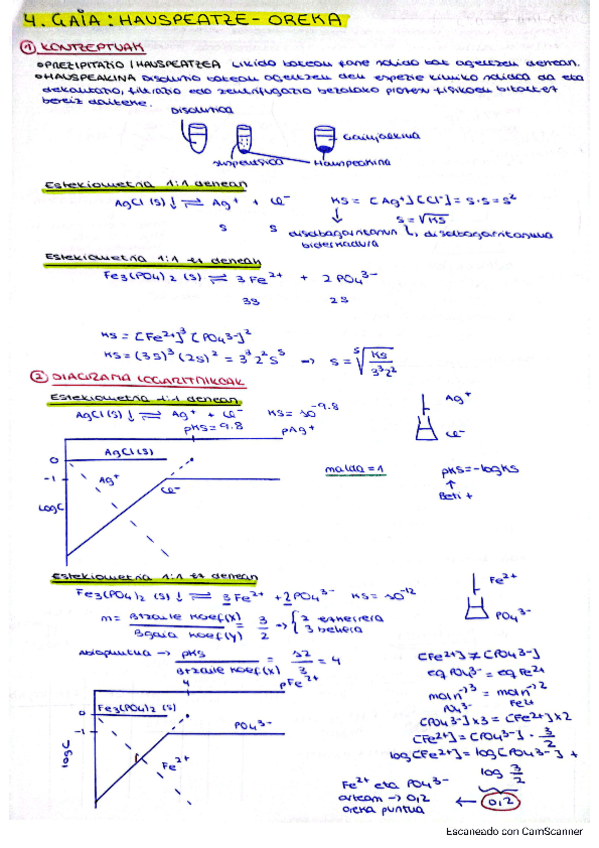 4. GAIA: HAUSPEATZE-OREKA
① KONTZEPTUAK
• PREZIPITATIO / HAUSPEATZEA Likido batean fase solido bat agertzen denean.
• HAUSPEAKINA Disoluzio batean agertzen den espezie kimiko solidoa da eta
dekantazio, filtrazio edo zentrifugazio bezalako prozesu fisikoen bitartez
bereiz daiteke.
DISOLUZIOA
Gainjalkina
suspentsioa Hauspeakina
Estekiometria 1:1 denean
AgCl (s)↓ ⇌ Ag⁺ + Cl⁻ KS = [Ag⁺][Cl⁻] = s·s = s²
s s s = √KS
disolbagarritasun disolbagarritasuna
biderkadura
Estekiometria 1:1 ez denean
Fe₃(PO₄)₂ (s) ⇌ 3Fe²⁺ + 2PO₄³⁻
3s 2s
KS = [Fe²⁺]³ [PO₄³⁻]²
KS = (3s)³ (2s)² = 3³2²s⁵ → s = ⁵√(KS/3³2²)
② DIAGRAMA LOGARITMIKOAK
Estekiometria 1:1 denean
AgCl(s)↓ ⇌ Ag⁺ + Cl⁻ KS = 10⁻⁹·⁸ Ag⁺
pKS = 9.8 pAg⁺ Cl⁻
AgCl(s)
0
malda = 1 pKS = -logKS
-1 Ag⁺ Cl⁻ ↑
Beti +
LOGC
Estekiometria 1:1 ez denean
Fe₃(PO₄)₂ (s)↓ ⇌ 3Fe²⁺ + 2PO₄³⁻ KS = 10⁻¹² Fe²⁺
PO₄³⁻
m = Btzaile koef(x) / Bgaia koef(y) = 3/2 → { 2 ezkerrera
3 behera
Abiapuntua → pKS / Btzaile koef(x) = 12/3 = 4
4 pFe²⁺
Fe₃(PO₄)₂ (s)
0
-1 PO₄³⁻
Fe²⁺
log C
[Fe²⁺] ≠ [PO₄³⁻]
eq PO₄³⁻ = eq Fe²⁺
[PO₄³⁻]x3 = [Fe²⁺]x2
[Fe²⁺] = [PO₄³⁻] · 3/2
log[Fe²⁺] = log[PO₄³⁻] +
log 3/2
Fe²⁺ eta PO₄³⁻
artean → 0,2 ← 0,2
oreka puntua
Escaneado con CamScanner